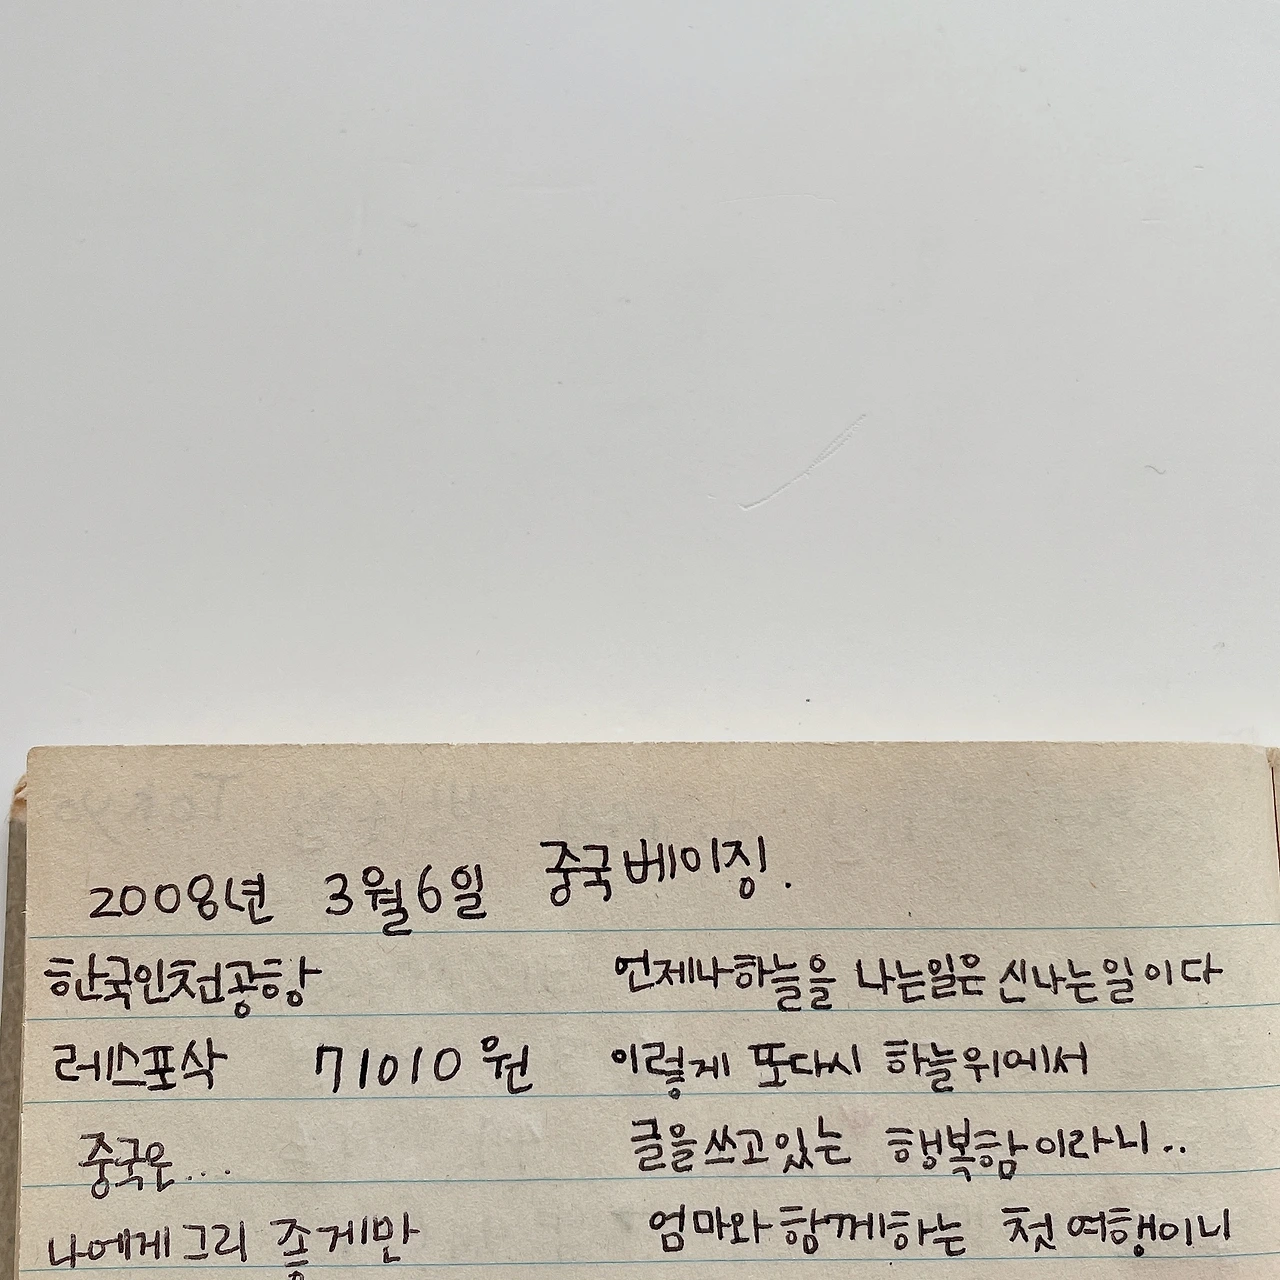 2008년 3월6일 중국베이징.
한국인천공항
레스포삭 71010원
중국은...
나에게그리 좋게만
언제나하늘을 나는일은 신나는일이다
이렇게 또다시 하늘위에서
글을쓰고있는 행복함이라니..
엄마와함께하는 첫여행이니